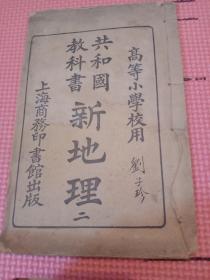 高等小學校用
共和國
教科書
新地理 二
上海商務印書館出版